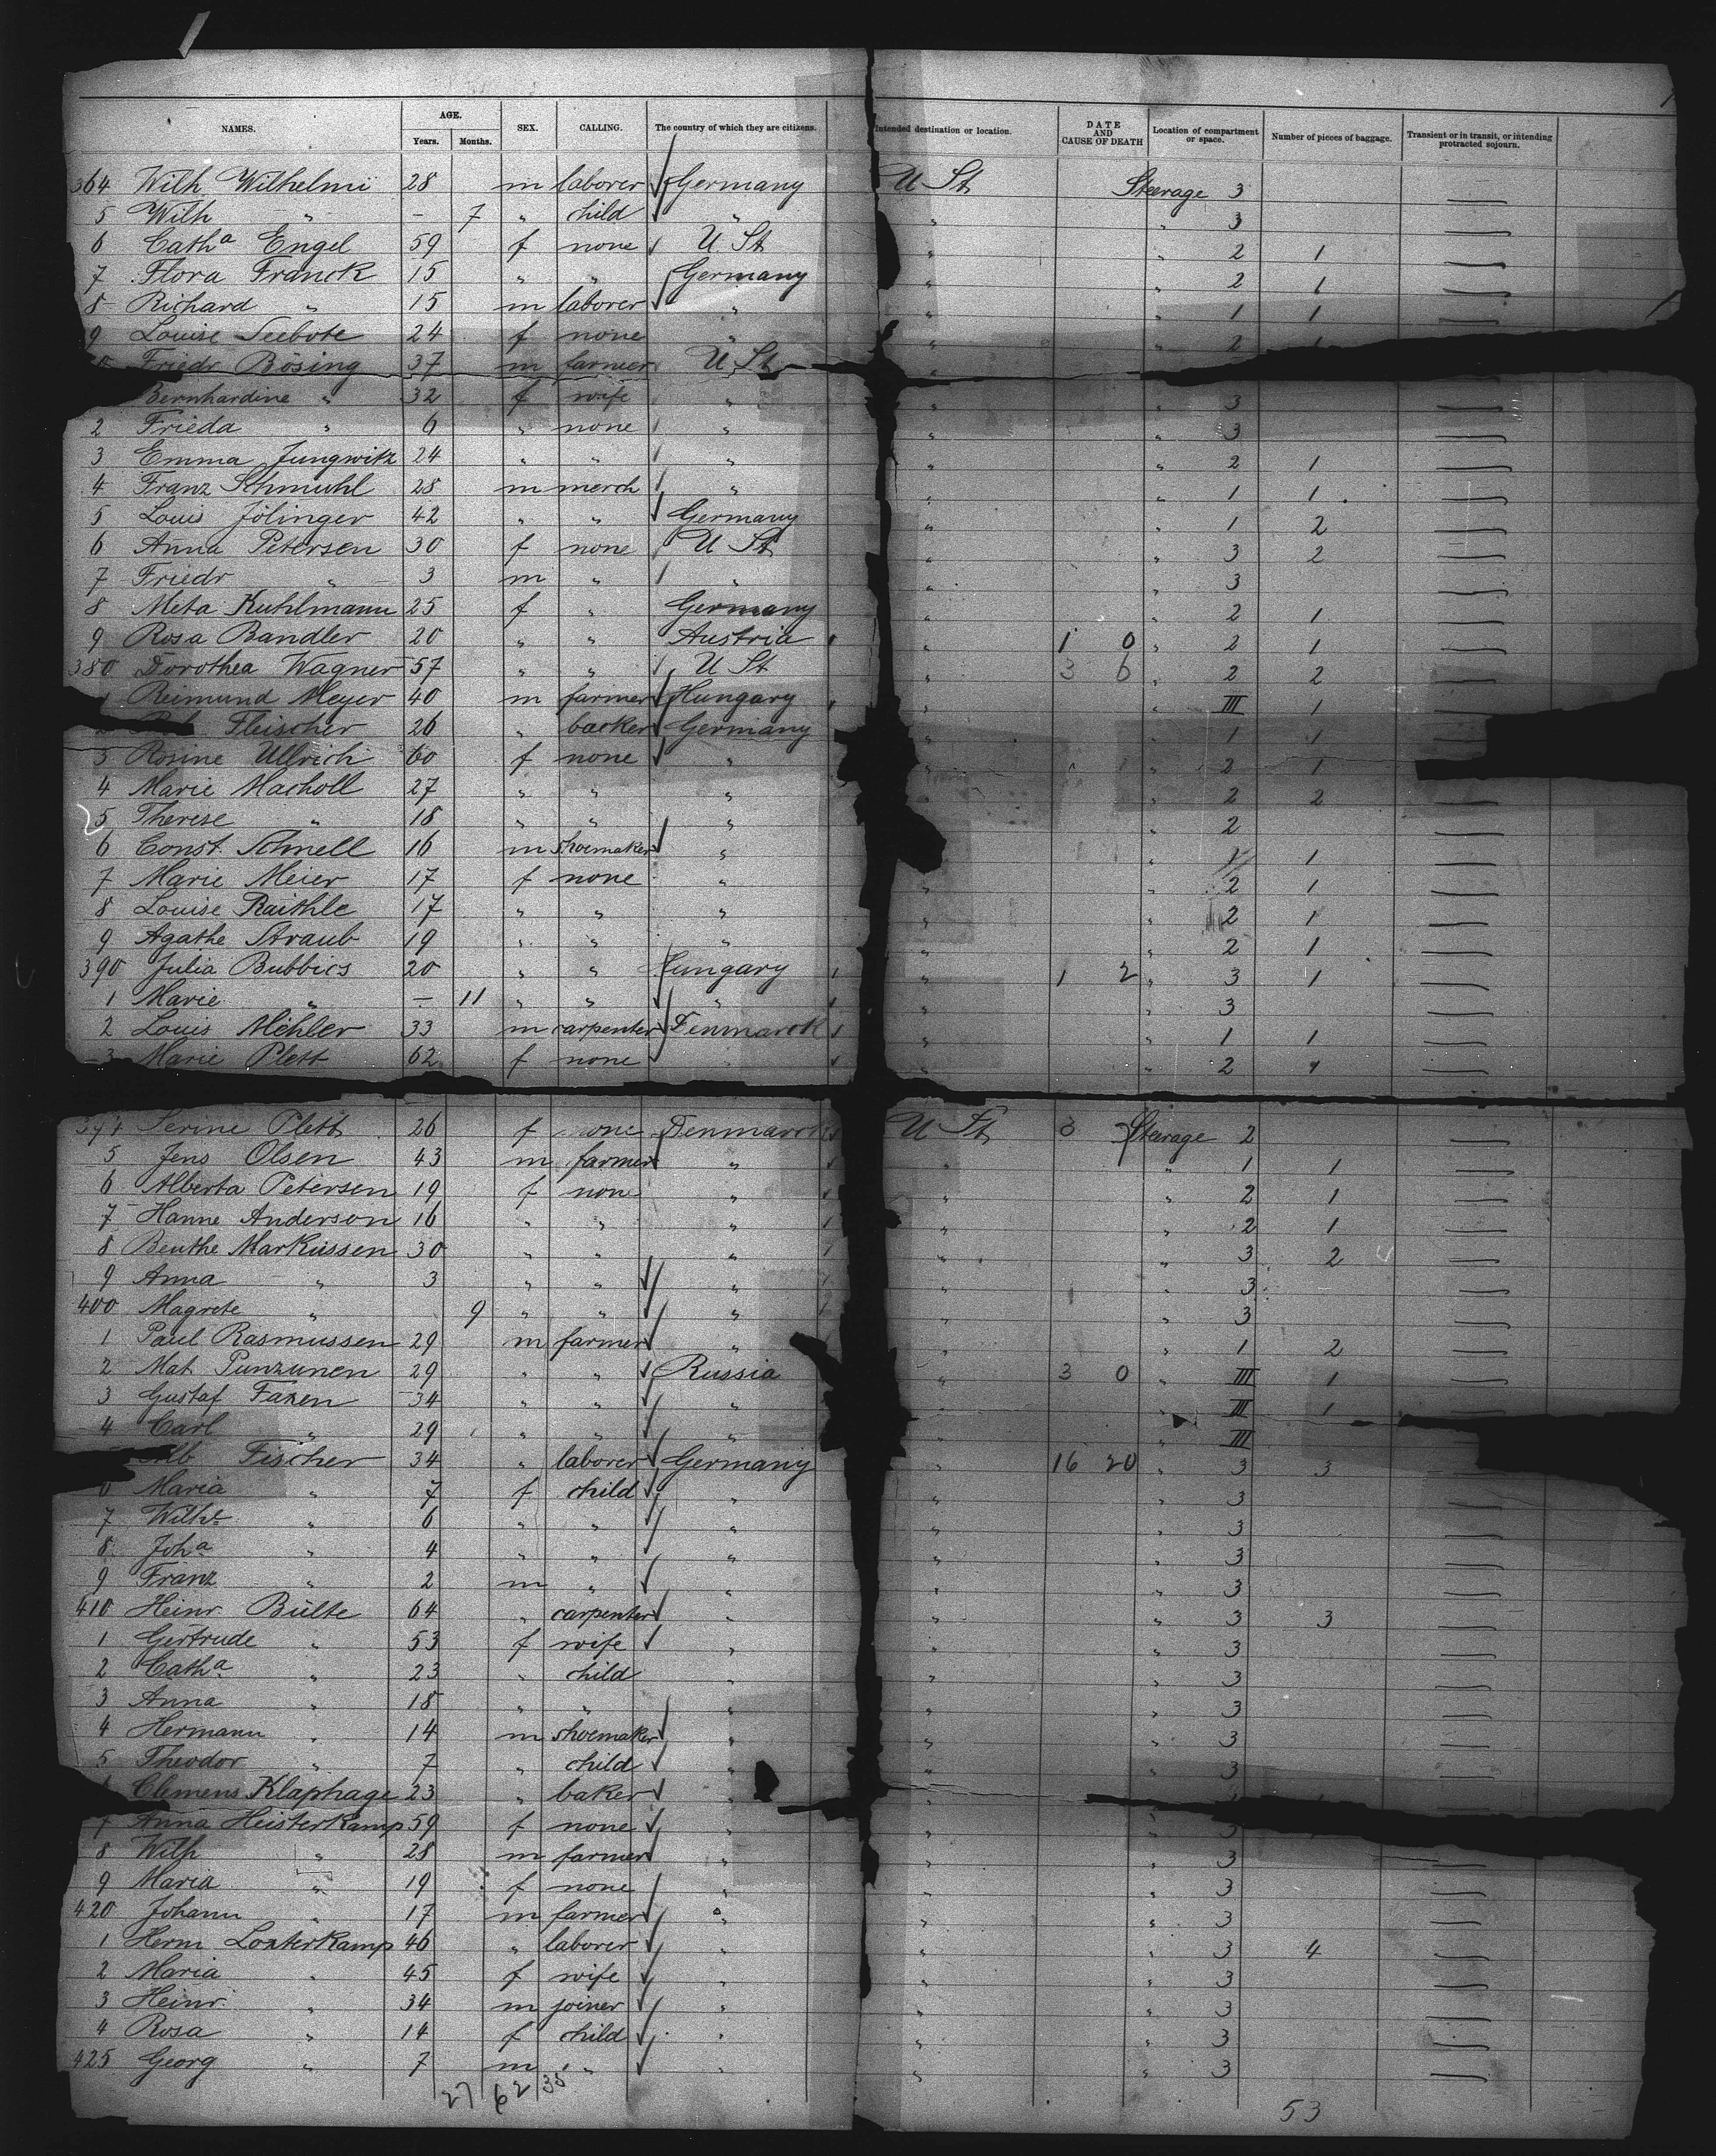 NAMES. AGE. Years. Months. SEX. CALLING. The country of which they are citizens. Intended destination or location. DATE AND CAUSE OF DEATH Location of compartment or space. Number of pieces of baggage. Transient or in transit, or intending protracted sojourn.
364 Wilh Wilhelmi 28 m laborer Germany U St Steerage 3
5 Wilh " - 7 " child " " " 3
6 Cath a Engel 59 f none U. St " " 2 1
7 Flora Franck 15 " " Germany " " 2 1
8 Richard " 15 m laborer " " " 1 1
9 Louise Seebote 24 f none " " " 2 1
Friedr Bösing 37 m farmer U St "
Bernhardine " 32 f wife " " " 3
2 Frieda " 6 " none " " " 3
3 Emma Jungwitz 24 " " " " " 2 1
4 Franz Schmuhl 28 m merch " " " 1 1
5 Louis Jölinger 42 " " Germany " " 1 2
6 Anna Petersen 30 f none U St " " 3 2
7 Friedr " 3 m " " " " 3
8 Meta Kuhlmann 25 f " Germany " " 2 1
9 Rosa Bandler 20 " " Austria " 1 0 " 2 1
380 Dorothea Wagner 57 " " U St " 3 6 " 2 2
Reimund Meyer 40 m farmer Hungary " " III 1
Fleischer 26 " backer Germany " " 1 1
3 Rosine Ullrich 60 f none " " " 2 1
4 Marie Macholl 27 " " " " " 2 2
5 Therese " 18 " " " " " 2
6 Const. Schnell 16 m shoemaker " " " 1 1
7 Marie Meier 17 f none " " " 2 1
8 Louise Raithle 17 " " " " " 2 1
9 Agathe Straub 19 " " " " " 2 1
390 Julia Bubbics 20 " " Hungary " 1 2 " 3 1
1 Marie " - 11 " " " " " 3
2 Louis Mehler 33 m carpenter Denmarck " " 1 1
3 Marie Plett 62 f none " " " 2 1
394 Serine Plett 26 f none Denmarck U St 3 Steerage 2
5 Jens Olsen 43 m farmer " " " 1 1
6 Alberta Petersen 19 f none " " " 2 1
7 Hanne Anderson 16 " " " " " 2 1
8 Benthe Markussen 30 " " " " " 3 2
9 Anna " 3 " " " " " 3
400 Magrete " 9 " " " " " 3
1 Paul Rasmussen 29 m farmer " " " 1 2
2 Mat Punzunen 29 " " Russia " 3 0 " III 1
3 Gustaf Fazen 34 " " " " " III 1
4 Carl " 29 " " " " " III
Alb Fischer 34 " laborer Germany " 16 20 " 3 3
6 Maria " 7 f child " " " 3
7 Wilhe " 6 " " " " " 3
8 Joha " 4 " " " " " 3
9 Franz " 2 m " " " " 3
410 Heinr Bülte 64 " carpenter " " " 3 3
1 Gertrude " 53 f wife " " " 3
2 Catha " 23 " child " " " 3
3 Anna " 18 " " " " " 3
4 Hermann " 14 m shoemaker " " " 3
5 Theodor " 7 " child " " " 3
Clemens Klaphage 23 " baker " "
7 Anna Heisterkamp 59 f none " " " 3
8 Wilh " 28 m farmer " " " 3
9 Maria " 19 f none " " " 3
420 Johann " 17 m farmer " " " 3
1 Herm Lonterkamp 46 " laborer " " " 3 4
2 Maria " 45 f wife " " " 3
3 Heinr. " 34 m joiner " " " 3
4 Rosa " 14 f child " " " 3
425 Georg " 7 m " " " " 3
27 62 35 53